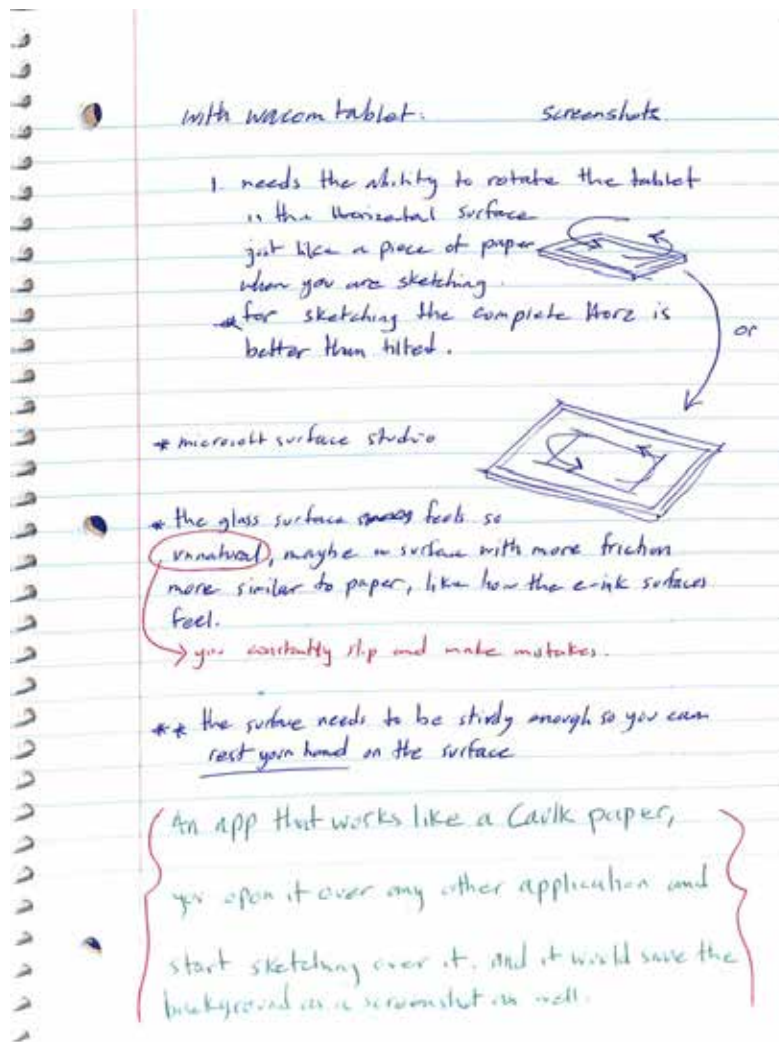 with wacom tablet: screenshots
1. needs the ability to rotate the tablet
in the Horizontal surface
just like a piece of paper
when you are sketching.
* for sketching the complete Horz is
better than tilted.
or
* microsoft surface studio
* the glass surface feels so
unnatural, maybe a surface with more friction
more similar to paper, like how the e-ink surfaces
feel.
→ you constantly slip and make mistakes.
** the surface needs to be stirdy enough so you can
rest your hand on the surface
An app that works like a Caulk paper,
you open it over any other application and
start sketching over it. and it would save the
background as a screenshot as well.